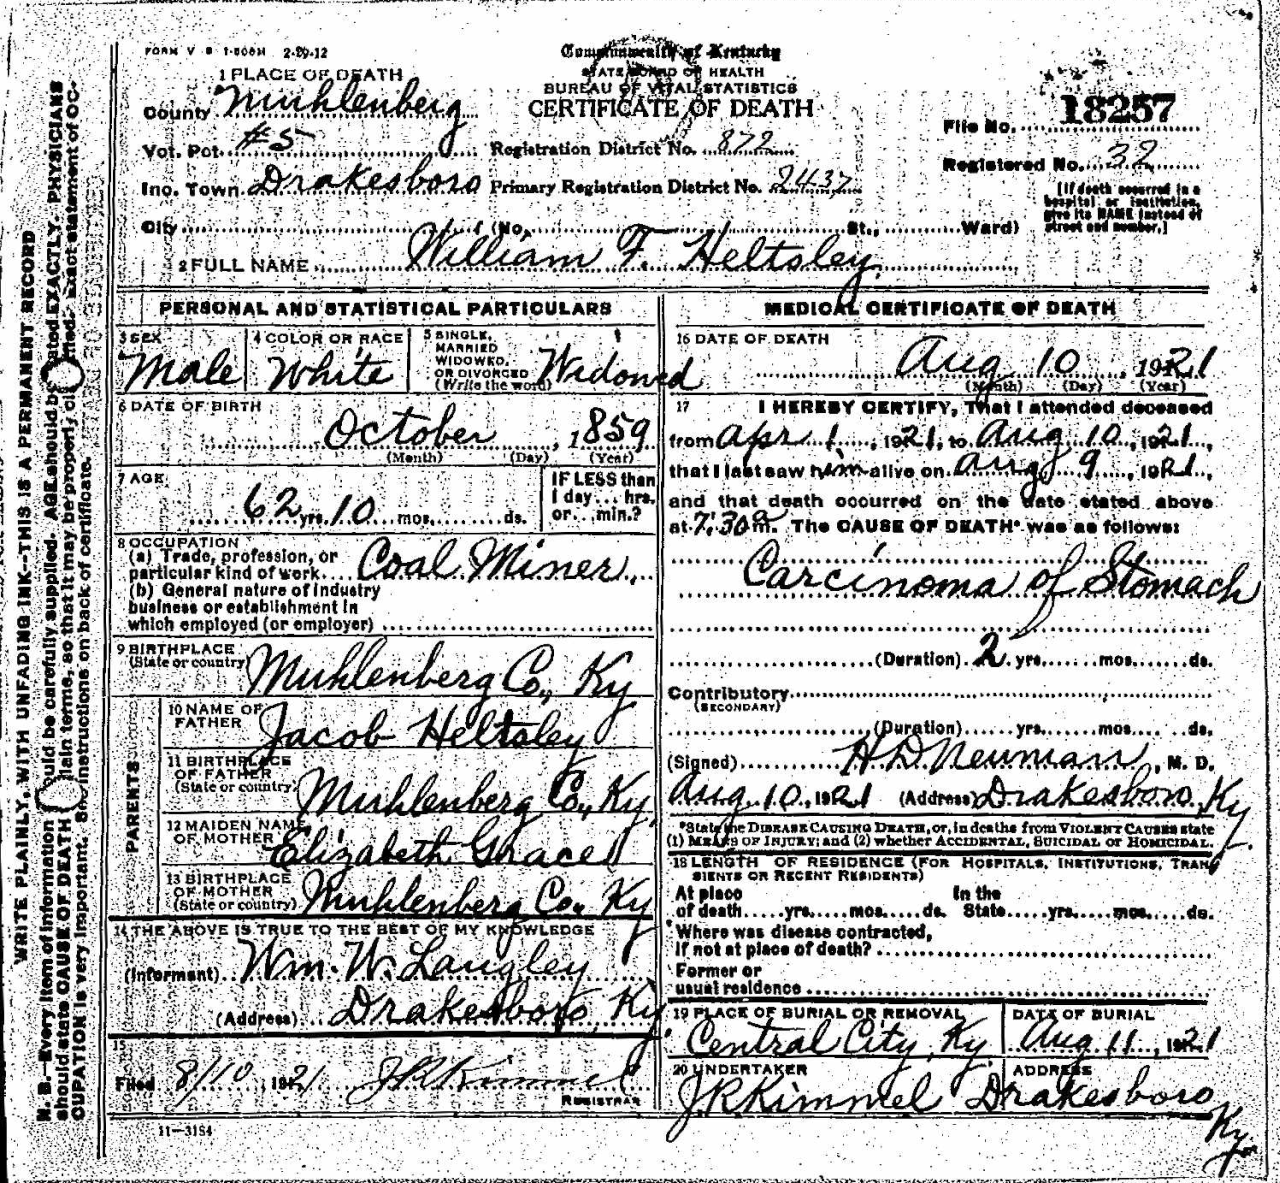 FORM V S 1-500M 2-29-12
Commonwealth of Kentucky
STATE BOARD OF HEALTH
BUREAU OF VITAL STATISTICS
CERTIFICATE OF DEATH
1 PLACE OF DEATH
County Muhlenberg
Vot. Pct. #5
Registration District No. 872
Inc. Town Drakesboro Primary Registration District No. 2437
City (No. St., Ward)
File No. 18257
Registered No. 32
[If death occurred in a
hospital or institution,
give its NAME instead of
street and number.]
2 FULL NAME William F. Heltsley
PERSONAL AND STATISTICAL PARTICULARS
3 SEX Male
4 COLOR OR RACE White
5 SINGLE,
MARRIED
WIDOWED,
OR DIVORCED
(Write the word) Widowed
6 DATE OF BIRTH
October, 1859
(Month) (Day) (Year)
7 AGE
62 yrs. 10 mos. ds.
IF LESS than
1 day... hrs.
or... min.?
8 OCCUPATION
(a) Trade, profession, or
particular kind of work. Coal Miner
(b) General nature of industry
business or establishment in
which employed (or employer)
9 BIRTHPLACE
(State or country) Muhlenberg Co., Ky
PARENTS
10 NAME OF
FATHER Jacob Heltsley
11 BIRTHPLACE
OF FATHER
(State or country) Muhlenberg Co., Ky
12 MAIDEN NAME
OF MOTHER Elizabeth Grace
13 BIRTHPLACE
OF MOTHER
(State or country) Muhlenberg Co., Ky
14 THE ABOVE IS TRUE TO THE BEST OF MY KNOWLEDGE
(Informant) Wm. W. Langley
(Address) Drakesboro, Ky
15
Filed 8/10, 1921 J R Kimmel
REGISTRAR
11-3184
MEDICAL CERTIFICATE OF DEATH
16 DATE OF DEATH
Aug 10, 1921
(Month) (Day) (Year)
17 I HEREBY CERTIFY, That I attended deceased
from Apr 1, 1921, to Aug 10, 1921,
that I last saw him alive on Aug 9, 1921,
and that death occurred on the date stated above
at 7:30 a m. The CAUSE OF DEATH* was as follows:
Carcinoma of Stomach
(Duration) 2 yrs. mos. ds.
Contributory
(SECONDARY)
(Duration) yrs. mos. ds.
(Signed) H D Newman, M. D.
Aug 10, 1921 (Address) Drakesboro, Ky.
*State the DISEASE CAUSING DEATH, or, in deaths from VIOLENT CAUSES state
(1) MEANS OF INJURY; and (2) whether ACCIDENTAL, SUICIDAL or HOMICIDAL.
18 LENGTH OF RESIDENCE (FOR HOSPITALS, INSTITUTIONS, TRAN-
SIENTS OR RECENT RESIDENTS)
At place In the
of death yrs. mos. ds. State yrs. mos. ds.
Where was disease contracted,
If not at place of death?
Former or
usual residence
19 PLACE OF BURIAL OR REMOVAL
Central City, Ky.
DATE OF BURIAL
Aug 11, 1921
20 UNDERTAKER
J R Kimmel
ADDRESS
Drakesboro
Ky.
WRITE PLAINLY, WITH UNFADING INK—THIS IS A PERMANENT RECORD
N. B.—Every item of information should be carefully supplied. AGE should be stated EXACTLY. PHYSICIANS
should state CAUSE OF DEATH in plain terms, so that it may be properly classified. Exact statement of OC-
CUPATION is very important. See instructions on back of certificate.